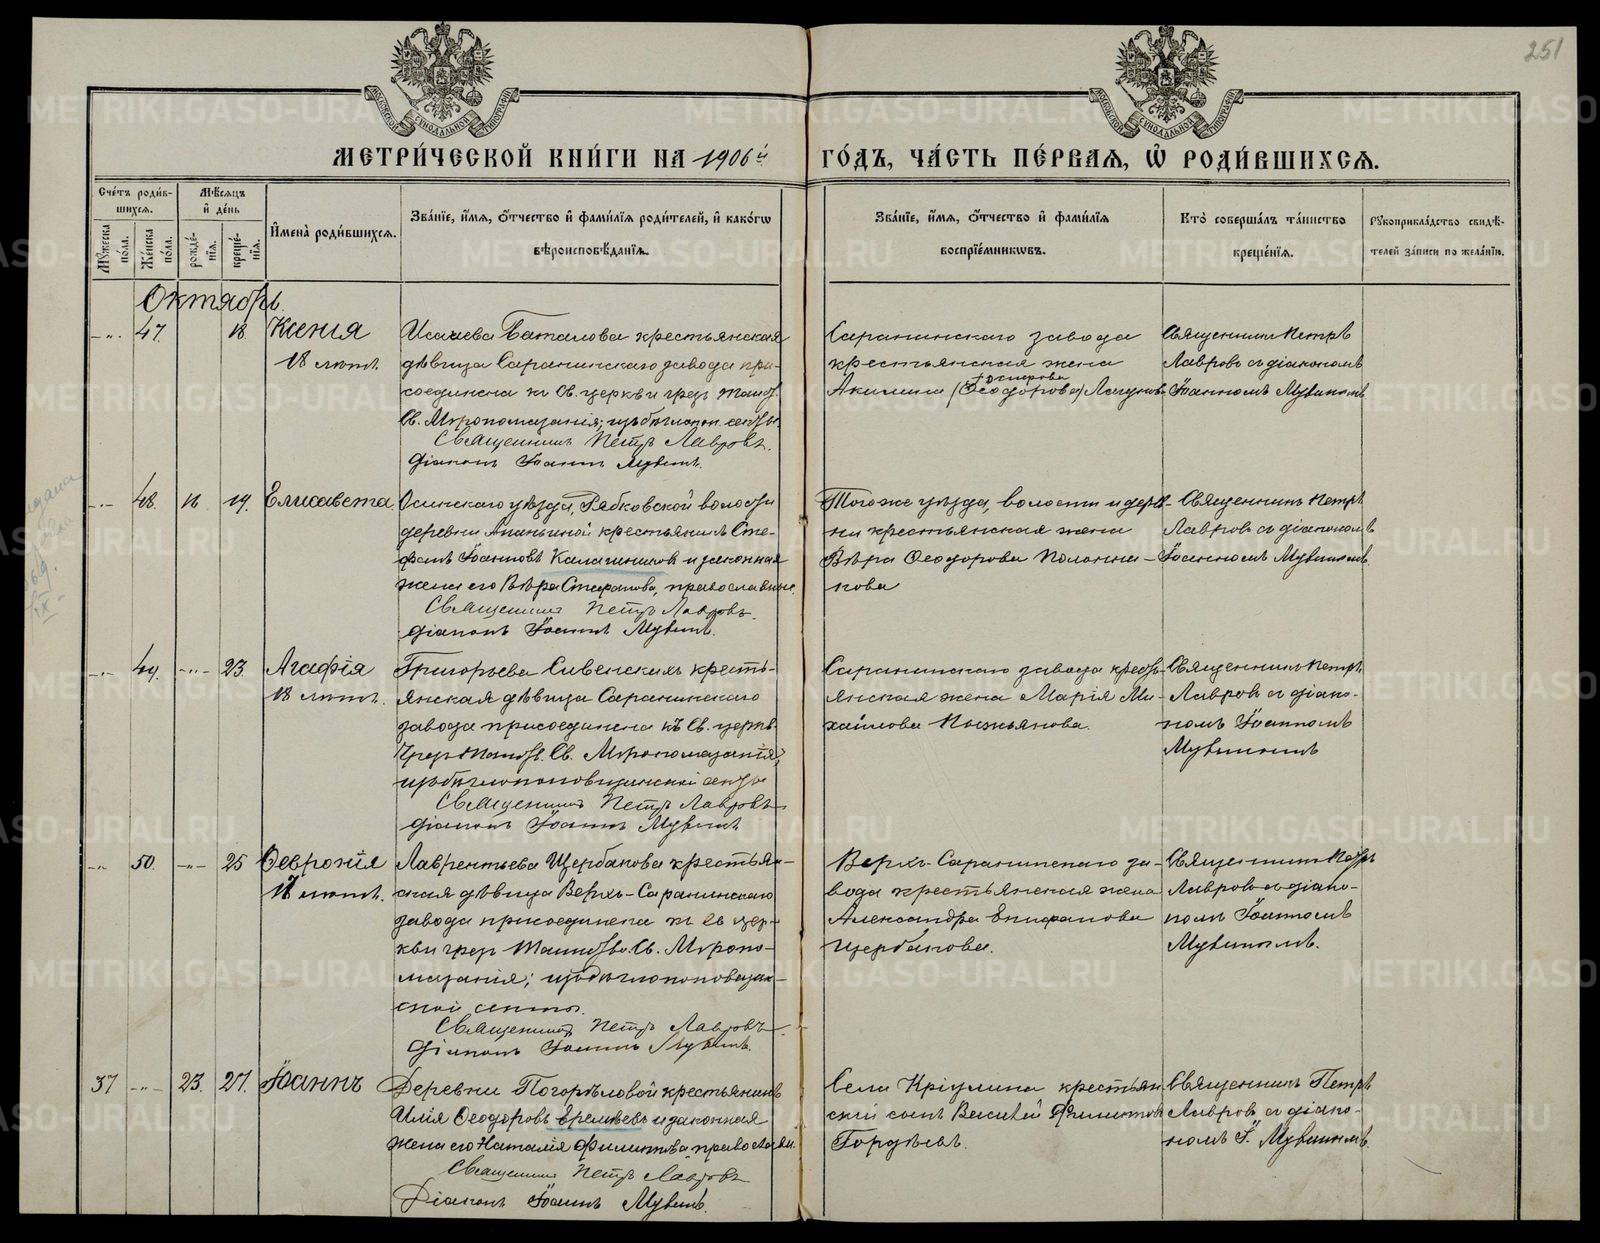 251
МЕТРИ́ЧЕСКОЙ КНИ́ГИ НА 1906й ГО́ДЪ, ЧА́СТЬ ПЕ́РВАѦ, Ѡ҆ РОДИ́ВШИХСѦ.
Сче́тъ роди́вшихсѧ.
Мѣ́сѧцъ и҆ де́нь
Мꙋ́жеска по́ла.
Же́нска по́ла.
рожде́нїѧ.
креще́нїѧ.
И҆мена̀ роди́вшихсѧ.
Зва́нїе, и҆́мѧ, ѻ҆́тчество и҆ фами́лїѧ роди́телей, и҆ како́гѡ
вѣроисповѣ́данїѧ.
Зва́нїе, и҆́мѧ, ѻ҆́тчество и҆ фами́лїѧ
воспрїе́мникѡвъ.
Кто̀ соверша́лъ та́инство
креще́нїѧ.
Рꙋкоприкла́дство свидѣ́-
телей за́писи по жела́нїю.
Октябрь.
47. 18. Ксенія
18 лѣтъ.
Исаиева Баталова крестьянская
дѣвица Саранинскаго завода при-
соединена къ Св. церкви чрез таинст.
Св. Мѵропомазанія;
Священникъ Петръ Лавровъ.
Діаконъ Іоаннъ Мувинъ.
Саранинскаго завода
крестьянская жена
Акилина (Ѳеодорова)
Священникъ Петръ
Лавровъ съ діакономъ
Іоанномъ Мувинымъ
48. 19. Елисавета
Осинскаго уѣзда, Рябковской волости
деревни Ананьиной крестьянинъ Сте-
фанъ Іоанновъ Калашниковъ и законная
жена его Вѣра Стефанова, православные.
Священникъ Петръ Лавровъ.
Діаконъ Іоаннъ Мувинъ.
Того же уѣзда, волости и дерев-
ни крестьянская жена
Вѣра Ѳеодорова Калашни-
кова
Священникъ Петръ
Лавровъ съ діакономъ
Іоанномъ Мувинымъ
49. 23. Агафія
18 лѣтъ.
Григорьева Сивенскихъ кресть-
янская дѣвица Саранинскаго
завода присоединена къ Св. церкв.
Чрез таинст. Св. Мѵропомазанія;
изъ бѣглопоповщинской секты
Священникъ Петръ Лавровъ
Діаконъ Іоаннъ Мувинъ
Саранинскаго завода кресть-
янская жена Марія Ми-
хайлова
Священникъ Петръ
Лавровъ съ діако-
номъ Іоанномъ
Мувинымъ
50. 25 Ѳевронія
18 лѣтъ.
Лаврентьева Щербакова крестьян-
ская дѣвица Верхъ-Саранинскаго
завода присоединена къ Св цер-
кви чрез таинство Св. Мѵропо-
мазанія; изъ бѣглопоповщин-
ской секты.
Священникъ Петръ Лавровъ.
Діаконъ Іоаннъ Мувинъ.
Верхъ-Саранинскаго за-
вода крестьянская жена
Александра Епифанова
Щербакова.
Священникъ Петръ
Лавровъ съ діако-
номъ Іоанномъ
Мувинымъ.
37 23. 27. Іоаннъ
Деревни Погорѣловой крестьянинъ
Илія Ѳеодоровъ Еремѣевъ и законная
жена его Наталія Филиппова, православн.
Священникъ Петръ Лавровъ
Діаконъ Іоаннъ Мувинъ.
Села Кріулина крестьян
скій сынъ Василій Филиппов
Гордѣевъ.
Священникъ Петръ
Лавровъ съ діако-
номъ І. Мувинымъ.
METRIKI.GASO-URAL.RU